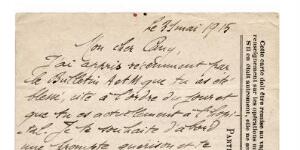 le 31 mai 1915
Mon cher Remy,
J'ai appris récemment par
le Bulletin que tu as été
blessé, cité à l'ordre du jour et
que tu es actuellement à l'hopi-
tal. Je te souhaite d'abord
une prompte guérison et te
Cette carte doit être remise au va
renseignement sur les opérations m
S'il en était autrement, elle ne s
PART